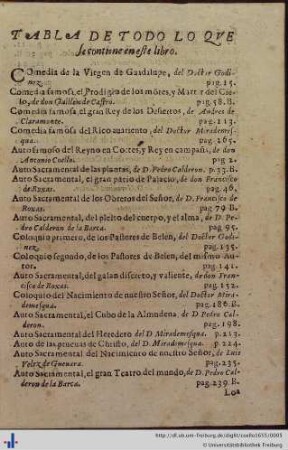 TABLA DE TODO LO QVE
se contiene en este libro.
Comedia de la Virgen de Guadalupe, del Doctor Godi-
nez, pag. 15.
Comedia famosa, el Prodigio de los mõtes, y Martir del Cie-
lo, de don Guillen de Castro. pag. 58. B.
Comedia famosa el gran Rey de los Desiertos, de Andres de
Claramonte. pag. 213.
Comedia famosa del Rico auariento, del Doctor Mirademes-
qua. pag. 265.
Auto famoso del Reyno en Cortes, y Rey en campaña, de don
Antonio Coello. pag 2.
Auto Sacramental de las plantas, de D. Pedro Calderon. p. 33. B.
Auto Sacramental, el gran patio de Palacio, de don Francisco
de Roxas. pag. 46.
Auto Sacramental de los Obreros del Señor, de D. Francisco de
Roxas. pag 79 B.
Auto Sacramental, del pleito del cuerpo, y el alma, de D. Pe-
dro Calderon de la Barca. pag 95.
Coloquio primero, de los Pastores de Belen, del Doctor Godi-
nez. pag. 135.
Coloquio segundo, de los Pastores de Belen, del mismo Au-
tor. pag. 141.
Auto Sacramental, del galan discreto, y valiente, de don Fran-
cisco de Roxas. pag. 152.
Coloquio del Nacimiento de nuestro Señor, del Doctor Mira-
demesqua. pag. 186. B.
Auto Sacramental, el Cubo de la Almudena, de D. Pedro Cal-
deron. pag. 198.
Auto Sacramental del Heredero del D. Mirademesqua. p. 213.
Auto de las prueuas de Christo, del D. Mirademesqua. p. 224.
Auto Sacramental del Nacimiento de nuestro Señor, de Luis
Velez de Gueuara. pag. 235.
Auto Sacramental, el gran Teatro del mundo, de D. Pedro Cal-
deron de la Barca. pag. 239. B.
Loa